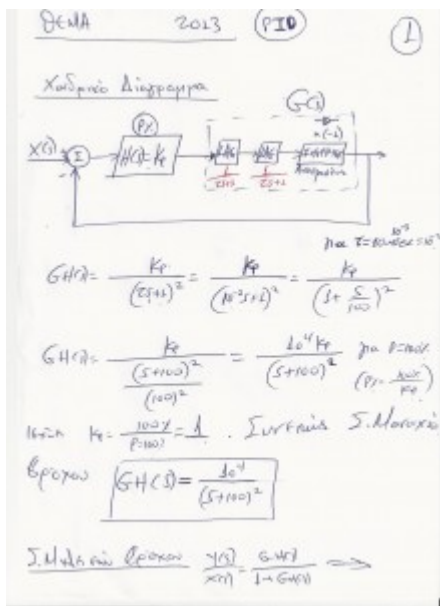 ΘΕΜΑ 2013 (PID) 1
Χονδρικό Διάγραμμα
G(s)
P%
X(s) Σ H(s)=Kp
1/(τs+1) 1/(τs+1)
GH(s)= Kp/(τs+1)² = Kp/(10⁻²s+1)² = Kp/(1+s/100)²
GH(s)= Kp/((s+100)²/(100)²) = 10⁴Kp/(s+100)² για P=100%
(P%=100%/Kp)
Kp=100%/P=100%=1. Συνεπώς Σ.Μεταφοράς
βρόχου GH(s)=10⁴/(s+100)²
βρόχου Y(s)/X(s)=G·H(s)/1+GH(s) ⇒